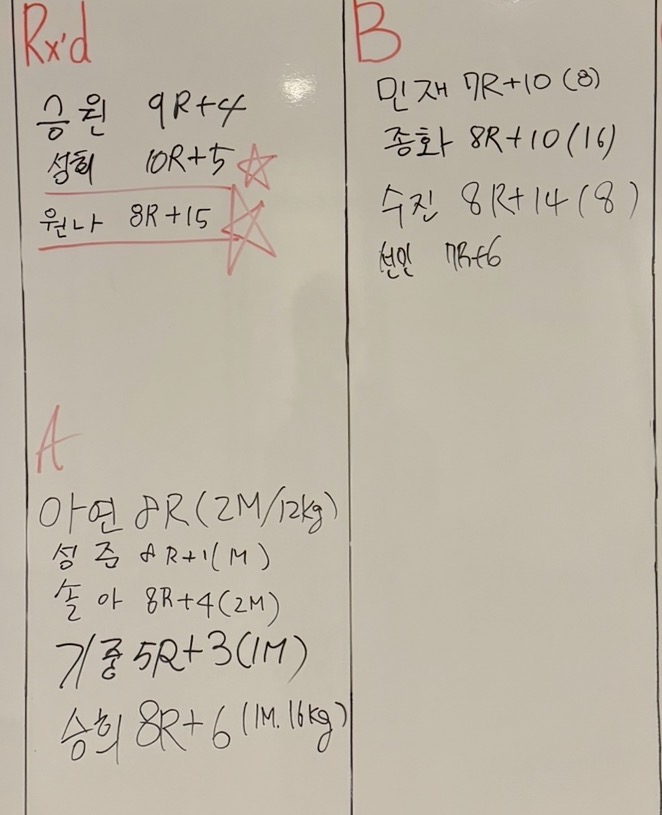 Rx'd
승원 9R+4
설희 10R+5
원나 8R+15
A
아연 8R(2M/12kg)
성준 8R+1(1M)
솔아 8R+4(2M)
기중 5R+3(1M)
승희 8R+6(1M.16kg)
B
민재 7R+10(8)
종화 8R+10(16)
수진 8R+14(8)
선인 7R+6